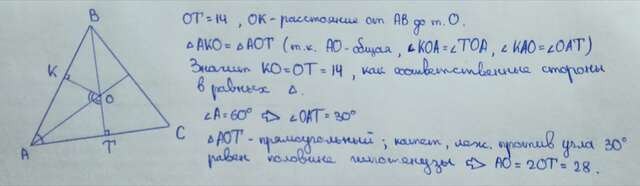 OT = 14, OK - расстояние от AB до т. O.
△AKO = △AOT (т.к. AO - общая, ∠KOA = ∠TOA, ∠KAO = ∠OAT)
Значит KO = OT = 14, как соответственные стороны
в равных △.
∠A = 60° ⇨ ∠OAT = 30°
△AOT - прямоугольный; катет, леж. против угла 30°
равен половине гипотенузы ⇨ AO = 2OT = 28.
B
K
O
A
T
C